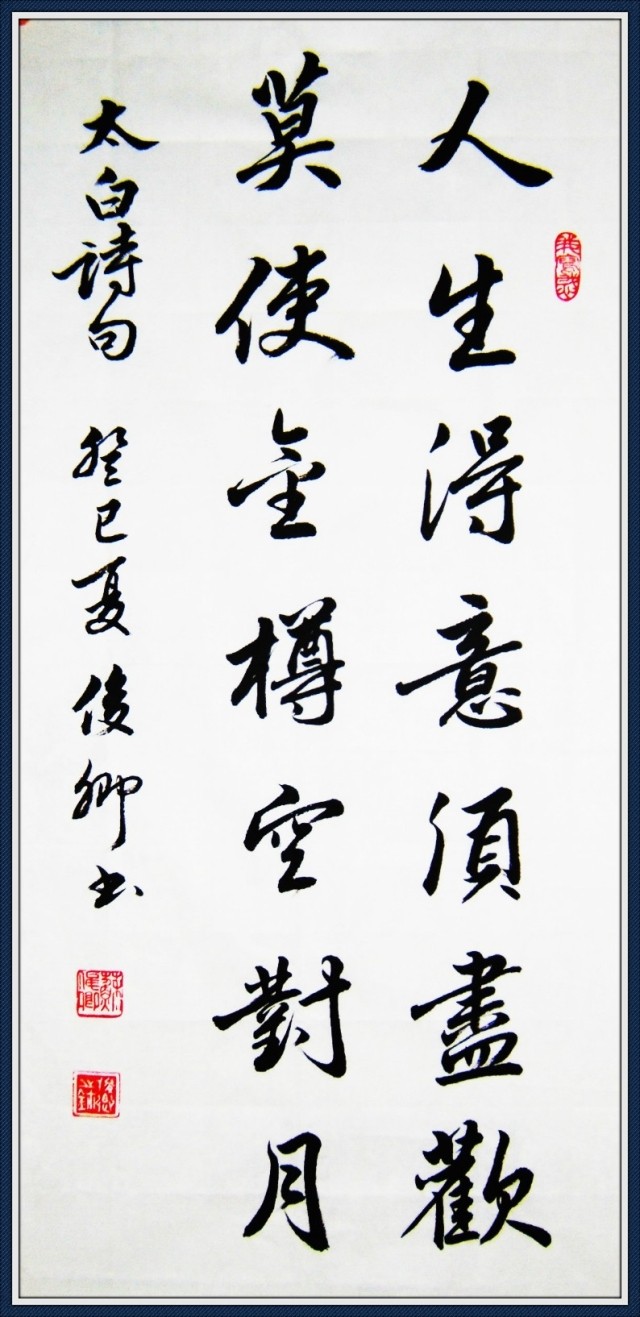 人生得意須盡歡
莫使金樽空對月
太白詩句 癸巳夏 俊卿書